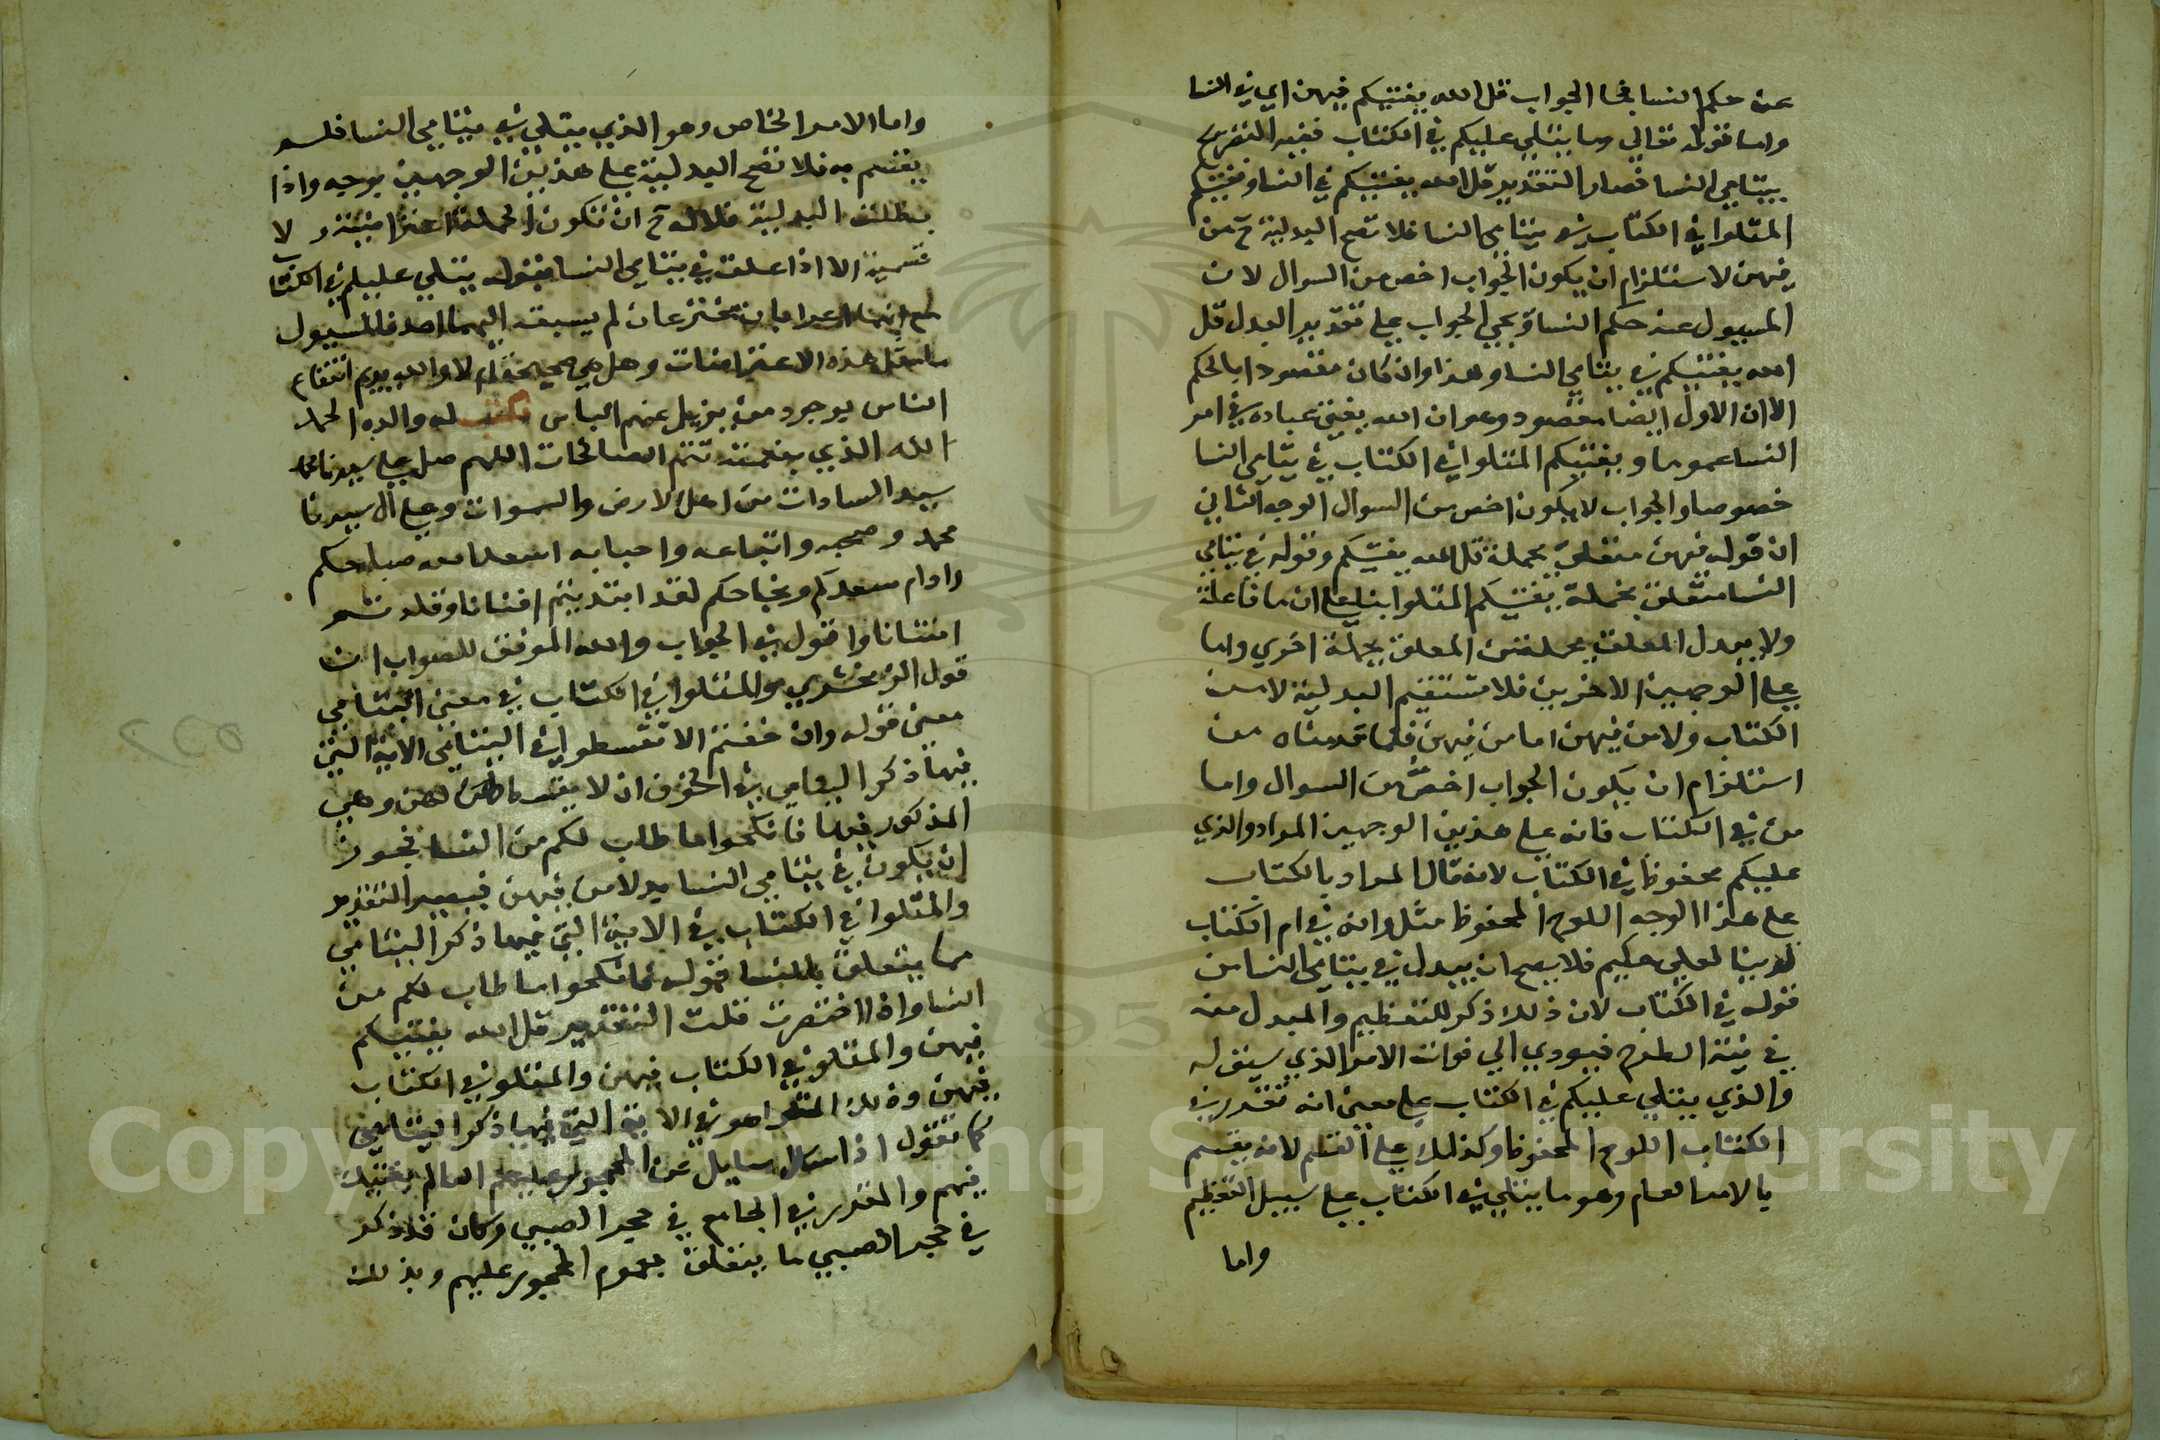 عن حكم النسا فجا الجواب قل الله يفتيكم فيهن اي في النسا
واما قوله تعالي وما يتلي عليكم في الكتاب ففيه التعرض
بيتامي النسا فصار التقدير قل الله يفتيكم في النسا ويفتيكم
المتلوا في الكتاب في يتامي النسا فلا تصح البدلية ح من
فيهن لاستلزام ان يكون الجواب اخص من السوال لان
المسيول عنه حكم النسا ويجي الجواب علي تقدير البدل قل
الله يفتيكم في يتامي النسا وهذا وان كان مقصودا بالحكم
الا ان الاول ايضا مقصود وهو ان الله يفتي عباده في امر
النسا عموما ويفتيكم المتلوا في الكتاب في يتامي النسا
خصوصا والجواب لا يكون اخص من السوال الوجه الثاني
ان قوله فيهن متعلق بجملة قل الله يفتيكم وقوله في يتامي
النسا متعلق بجملة يفتيكم المتلوا بنا علي ان ما فاعلة
ولا يبدل المعلق بجملة من المعلق بجملة اخري واما
علي الوجهين الاخرين فلا تستقيم البدلية لا من
الكتاب ولا من فيهن اما من فيهن فلما قدمناه من
استلزام ان يكون الجواب اخص من السوال واما
من في الكتاب فانه علي هذين الوجهين المراد والذي
عليكم محفوظ في الكتاب لانه قال المراد بالكتاب
علي هذا الوجه اللوح المحفوظ مثل وانه في ام الكتاب
لدينا لعلي حكيم فلا يصح ان يبدل في يتامي النسا من
قوله في الكتاب لان ذلك ذكر للتعظيم والمبدل منه
في نية الطرح فيودي الي فوات الامر الذي سيق له
والذي يتلي عليكم في الكتاب علي معني انه تقدر في
الكتاب اللوح المحفوظ وكذلك علي القسم لانه يقسم
بالامر العام وهو ما يتلي في الكتاب علي سبيل التعظيم
واما
واما الامر الخاص وهو الذي يتلي في يتامي النسا فلم
يقسم به فلا تصح البدلية علي هذين الوجهين بوجه واذا
بطلت البدلية فلا له ح ان تكون الجملة اعتراضية ولا
قسمية الا اذا علق في يتامي النسا بقوله يتلي عليكم في الكتاب
مخترعان لم يسبقه اليهما احد فالمسيول
هذه الاعتراضات وهل هي صحيحة ام لا والله يديم انتفاع
الناس بوجود من يزيل عنهم الباس فكتب له والده الحمد
لله الذي بنعمته تتم الصالحات اللهم صل علي سيدنا محمد
سيد السادات من اهل الارض والسموات وعلي آل سيدنا
محمد وصحبه واتباعه واحبابه اسعد الله صباحكم
وادام سعدكم ونجاحكم لقد ابتديتم افتنانا وقلد تم
امتنانا واقول في الجواب والله الموفق للصواب ان
قول الزمخشري والمتلوا في الكتاب في معني اليتامي
معني قوله وان خفتم الا تقسطوا في اليتامي الاية التي
فيها ذكر اليتامي في الخوف ان لا يقسط لهن وهي
المذكور فيها فانكحوا ما طاب لكم من النسا فيجوز
ان يكون في يتامي النسا بدلا من فيهن فيصير التقدير
والمتلوا في الكتاب في الاية التي فيها ذكر اليتامي
مما يتعلق بالنسا قوله فانكحوا ما طاب لكم من
النسا واذا اختصرت قلت التقدير قل الله يفتيكم
فيهن والمتلو في الكتاب فيهن والمتلو في الكتاب
فيهن وذلك المتلو هو في الاية التي فيها ذكر اليتامي
كما تقول اذا سال سايل عن المحجور عليهم العالم يفتيك
فيهم والمقدر في الجامع في حجر الصبي وكان قد ذكر
في حجر الصبي ما يتعلق بعموم المحجور عليهم وبذلك